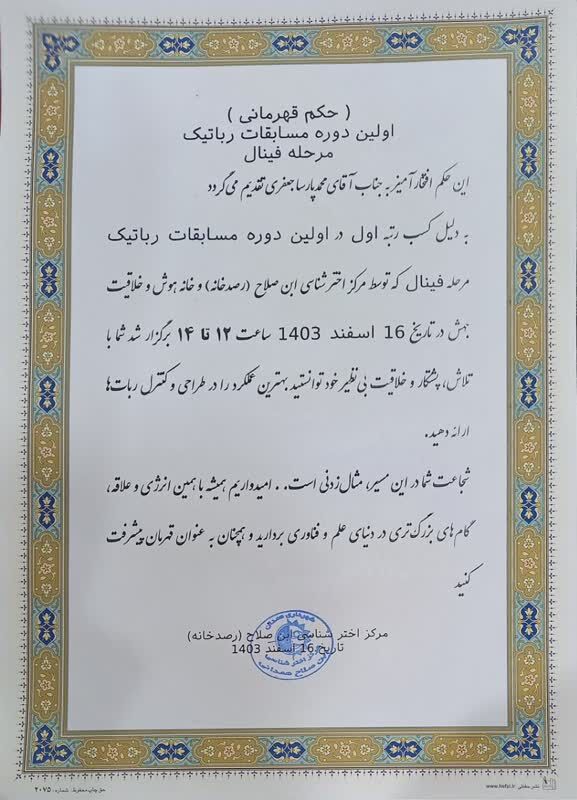 ( حکم قهرمانی )
اولین دوره مسابقات رباتیک
مرحله فینال
این حکم افتخارآمیز به جناب آقای محمدپارسا جعفری تقدیم می‌گردد
به دلیل کسب رتبه اول در اولین دوره مسابقات رباتیک
مرحله فینال که توسط مرکز اخترشناسی ابن صلاح (رصدخانه) و خانه هوش و خلاقیت
جهش در تاریخ 16 اسفند 1403 ساعت ۱۲ تا ۱۴ برگزار شد شما با
تلاش، پشتکار و خلاقیت بی‌نظیر خود توانستید بهترین عملکرد را در طراحی و کنترل ربات‌ها
ارائه دهید.
شجاعت شما در این مسیر، مثال‌زدنی است. . امیدواریم همیشه با همین انرژی و علاقه،
گام‌های بزرگ‌تری در دنیای علم و فناوری بردارید و همچنان به عنوان قهرمان پیشرفت
کنید
شهرداری همدان
مرکز اختر شناسی ابن صلاح (رصدخانه)
تاریخ 16 اسفند 1403
مرکز اختر شناسی
ابن صلاح همدانی
حق چاپ محفوظ. شماره: ۲۰۷۵
نشر حفظی www.hefzi.ir